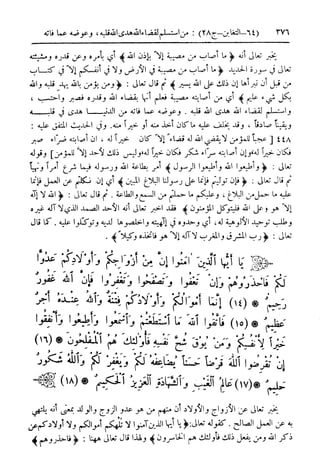 ٣٧٦ (٦٤ - التغابن - ج٢٨) : من استسلم لقضاء الله هدى الله قلبه ، وعوضه عما فاته
يخبر تعالى أنه ﴿ ما أصاب من مصيبة إلا بإذن الله ﴾ أي بأمره وعن قدره ومشيئته
تعالى في سورة الحديد ﴿ ما أصاب من مصيبة في الأرض ولا في أنفسكم إلا في كتــاب
من قبل أن نبرأها إن ذلك على الله يسير ﴾ ثم قال تعالى : ﴿ ومن يؤمن بالله يهد قلبه والله
بكل شيء عليم ﴾ أي من أصابته مصيبة فعلم أنها بقضاء الله وقدره فصبر واحتسب ،
واستسلم لقضاء الله هدى الله قلبه . وعوضه عما فاته من الدنيــا هدى في قلبــه
ويقيناً صادقاً ، وقد يخلف عليه ما كان أخذ منه أو خيراً منه . وفي الحديث المتفق عليه :
٤٤٨ [ عجباً للمؤمن لا يقضي الله له قضاء إلا كان خيراً له ، ان أصابته ضراء صبر
فكان خيراً له وإن أصابته سراء شكر فكان خيراً له وليس ذلك لأحد إلا للمؤمن ] وقوله
تعالى : ﴿ وأطيعوا الله وأطيعوا الرسول ﴾ أمر بطاعة الله ورسوله فيما شرع أمراً ونهياً
ثم قال تعالى : ﴿ فإن توليتم فإنما على رسولنا البلاغ المبين ﴾ أي إن نكلتم عن العمل فإنما
عليه ما حمل من البلاغ ، وعليكم ما حملتم من السمع والطاعة . ثم قال تعالى : ﴿ الله لا إله
إلا هو وعلى الله فليتوكل المؤمنون ﴾ فقد أخبر تعالى أنه الأحد الصمد الذي لا آله غيره
وطلب توحيد الألوهية له ، أي وحدوه في إلهيته واخلصوها لديه وتوكلوا عليه . كما قال
تعالى : ﴿ رب المشرق والمغرب لا آله إلا هو فاتخذه وكيلاً ﴾ .
يَا أَيُّهَا الَّذِينَ آمَنُوا إِنَّ مِنْ أَزْوَاجِكُمْ وَأَوْلَادِكُمْ عَدُوًّا
لَكُمْ فَاحْذَرُوهُمْ وَإِنْ تَعْفُوا وَتَصْفَحُوا وَتَغْفِرُوا فَإِنَّ اللَّهَ غَفُورٌ
رَحِيمٌ (١٤) إِنَّمَا أَمْوَالُكُمْ وَأَوْلَادُكُمْ فِتْنَةٌ وَاللَّهُ عِنْدَهُ أَجْرٌ
عَظِيمٌ (١٥) فَاتَّقُوا اللَّهَ مَا اسْتَطَعْتُمْ وَاسْمَعُوا وَأَطِيعُوا وَأَنْفِقُوا
خَيْرًا لِأَنْفُسِكُمْ وَمَنْ يُوقَ شُحَّ نَفْسِهِ فَأُولَئِكَ هُمُ الْمُفْلِحُونَ (١٦)
إِنْ تُقْرِضُوا اللَّهَ قَرْضًا حَسَنًا يُضَاعِفْهُ لَكُمْ وَيَغْفِرْ لَكُمْ وَاللَّهُ شَكُورٌ
حَلِيمٌ (١٧) عَالِمُ الْغَيْبِ وَالشَّهَادَةِ الْعَزِيزُ الْحَكِيمُ (١٨)
يخبر تعالى عن الأزواج والأولاد أن منهم من هو عدو الزوج والوالد بمعنى أنه يلتهي
به عن العمل الصالح . كقوله تعالى : ﴿ يا أيها الذين آمنوا لا تلهكم أموالكم ولا أولادكم عن
ذكر الله ومن يفعل ذلك فأولئك هم الخاسرون ﴾ ولهذا قال تعالى ههنا : ﴿ فاحذروهم ﴾